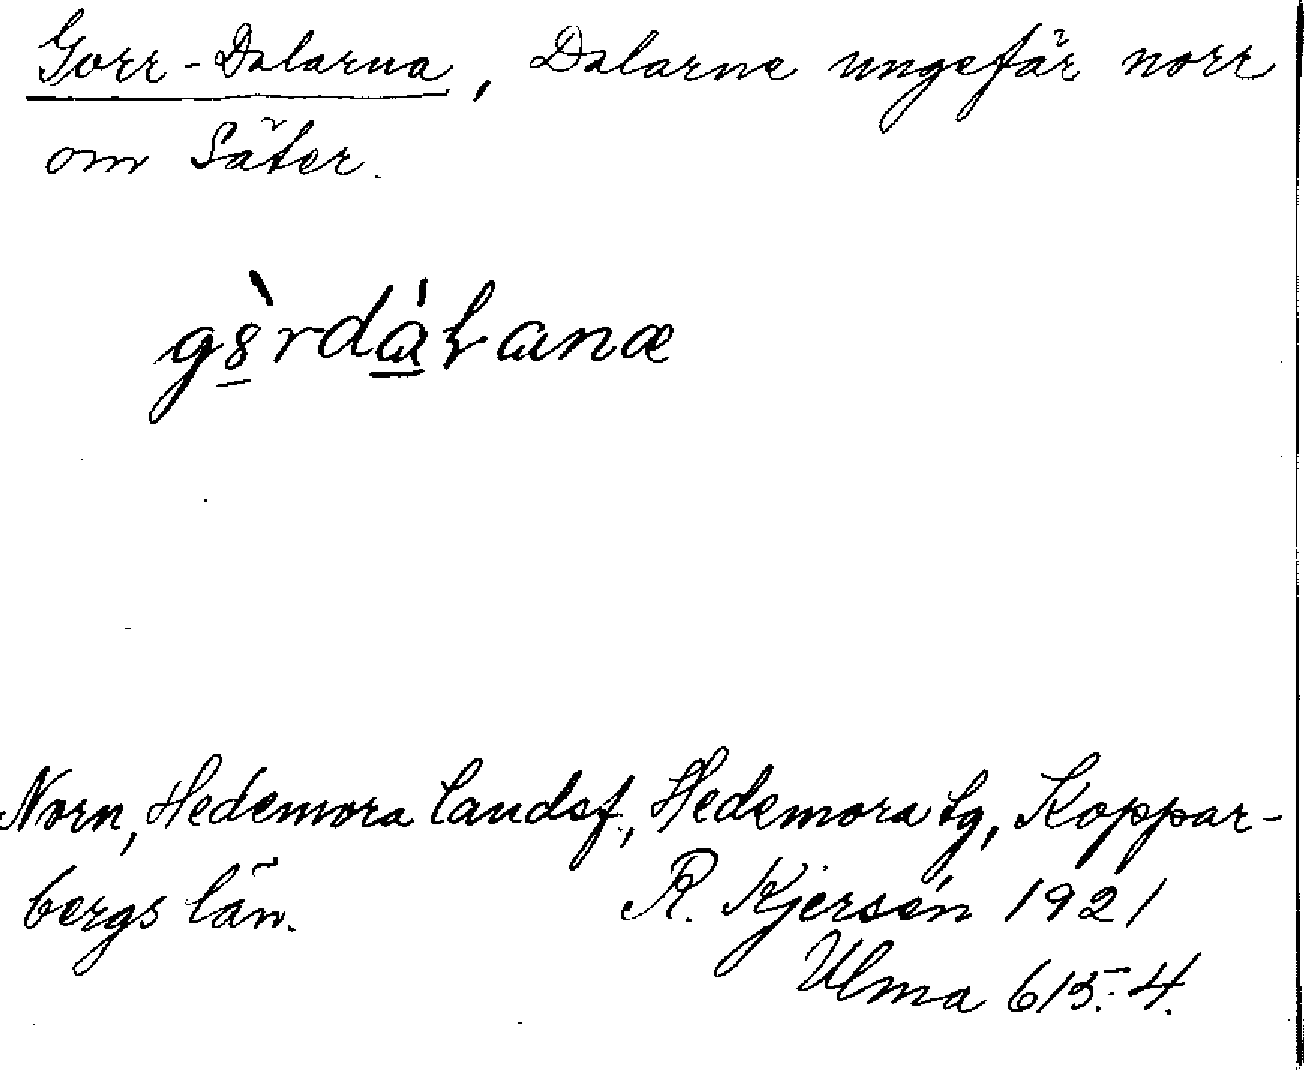 Gorr-Dalarna, Dalarne ungefär norr
om Säter.
gȣ̀rdàłanæ
Norn, Hedemora landsf., Hedemora tg, Koppar-
bergs län. R. Kjersén 1921
Ulma 615:4.